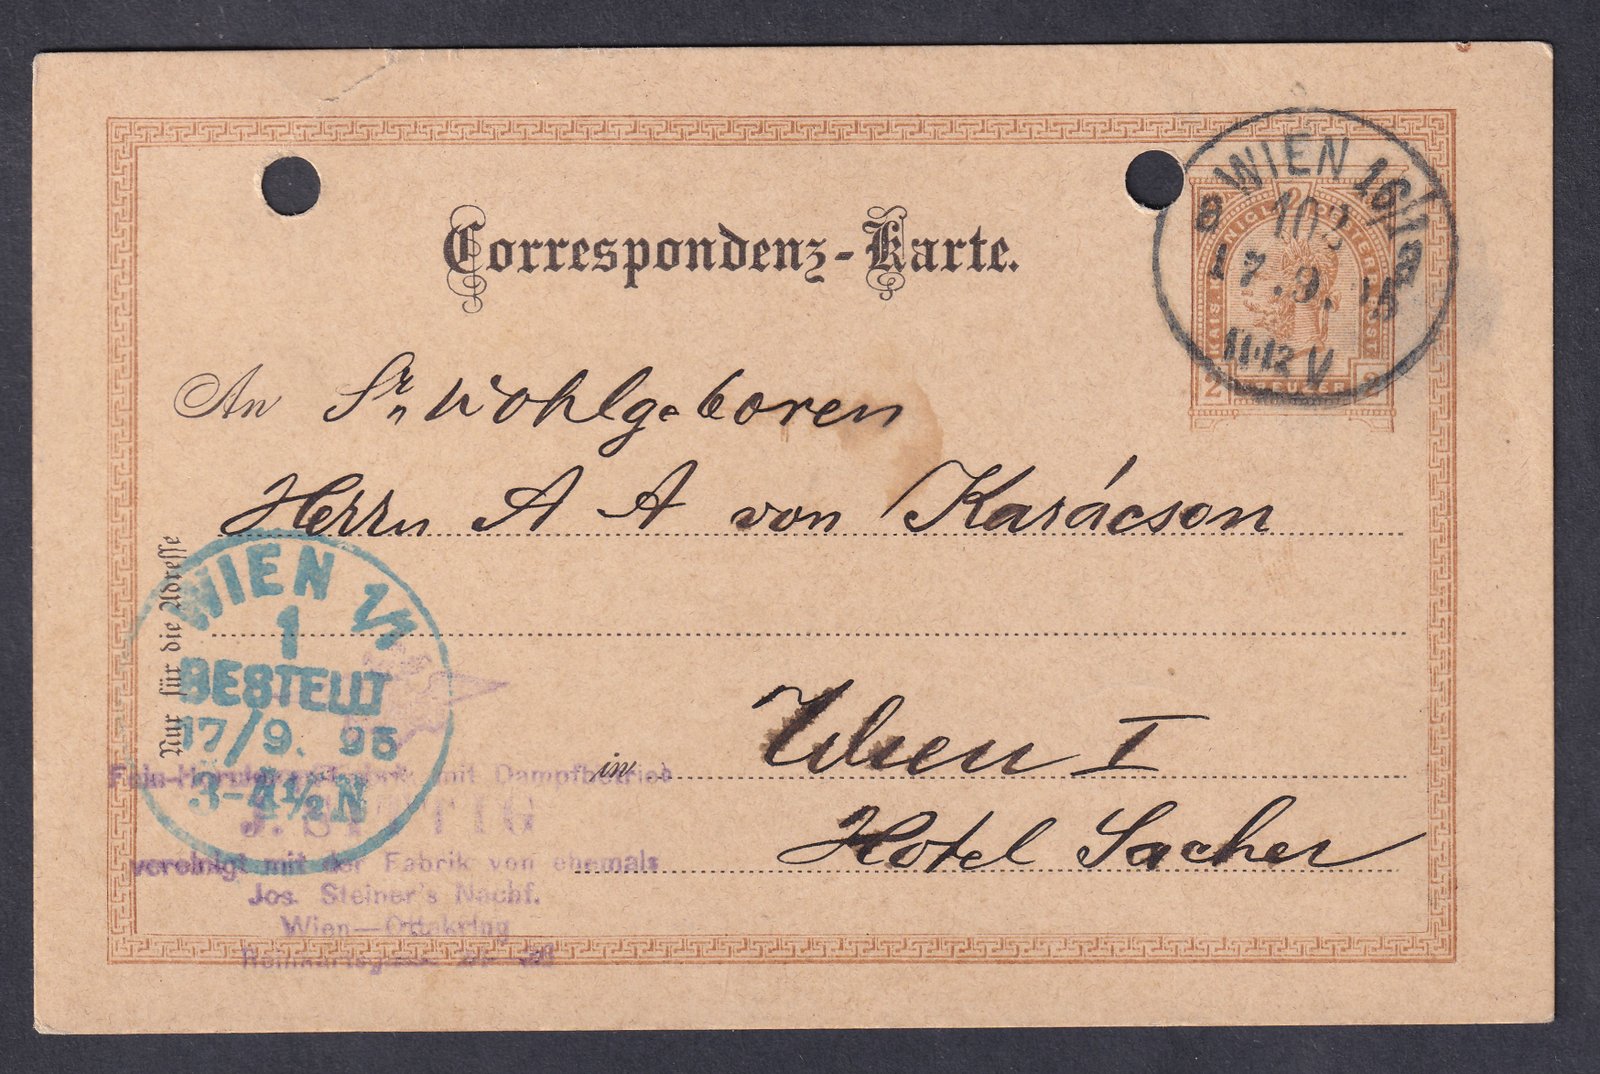 Correspondenz-Karte.
WIEN 16/1a
103
17.9.95
11-12 V
KAIS. KÖNIGL. ÖSTERR. POST.
2 KREUZER 2
An Sr. Wohlgeboren
Herrn A A von Karácson
in Wien I
Hotel Sacher
Nur für die Adresse
WIEN 1/1
1
BESTELLT
17/9. 95
3-4½N
mit Dampfbetrieb
J.
vereinigt mit der Fabrik von ehemals
Jos. Steiner's Nachf.
Wien—Ottakring